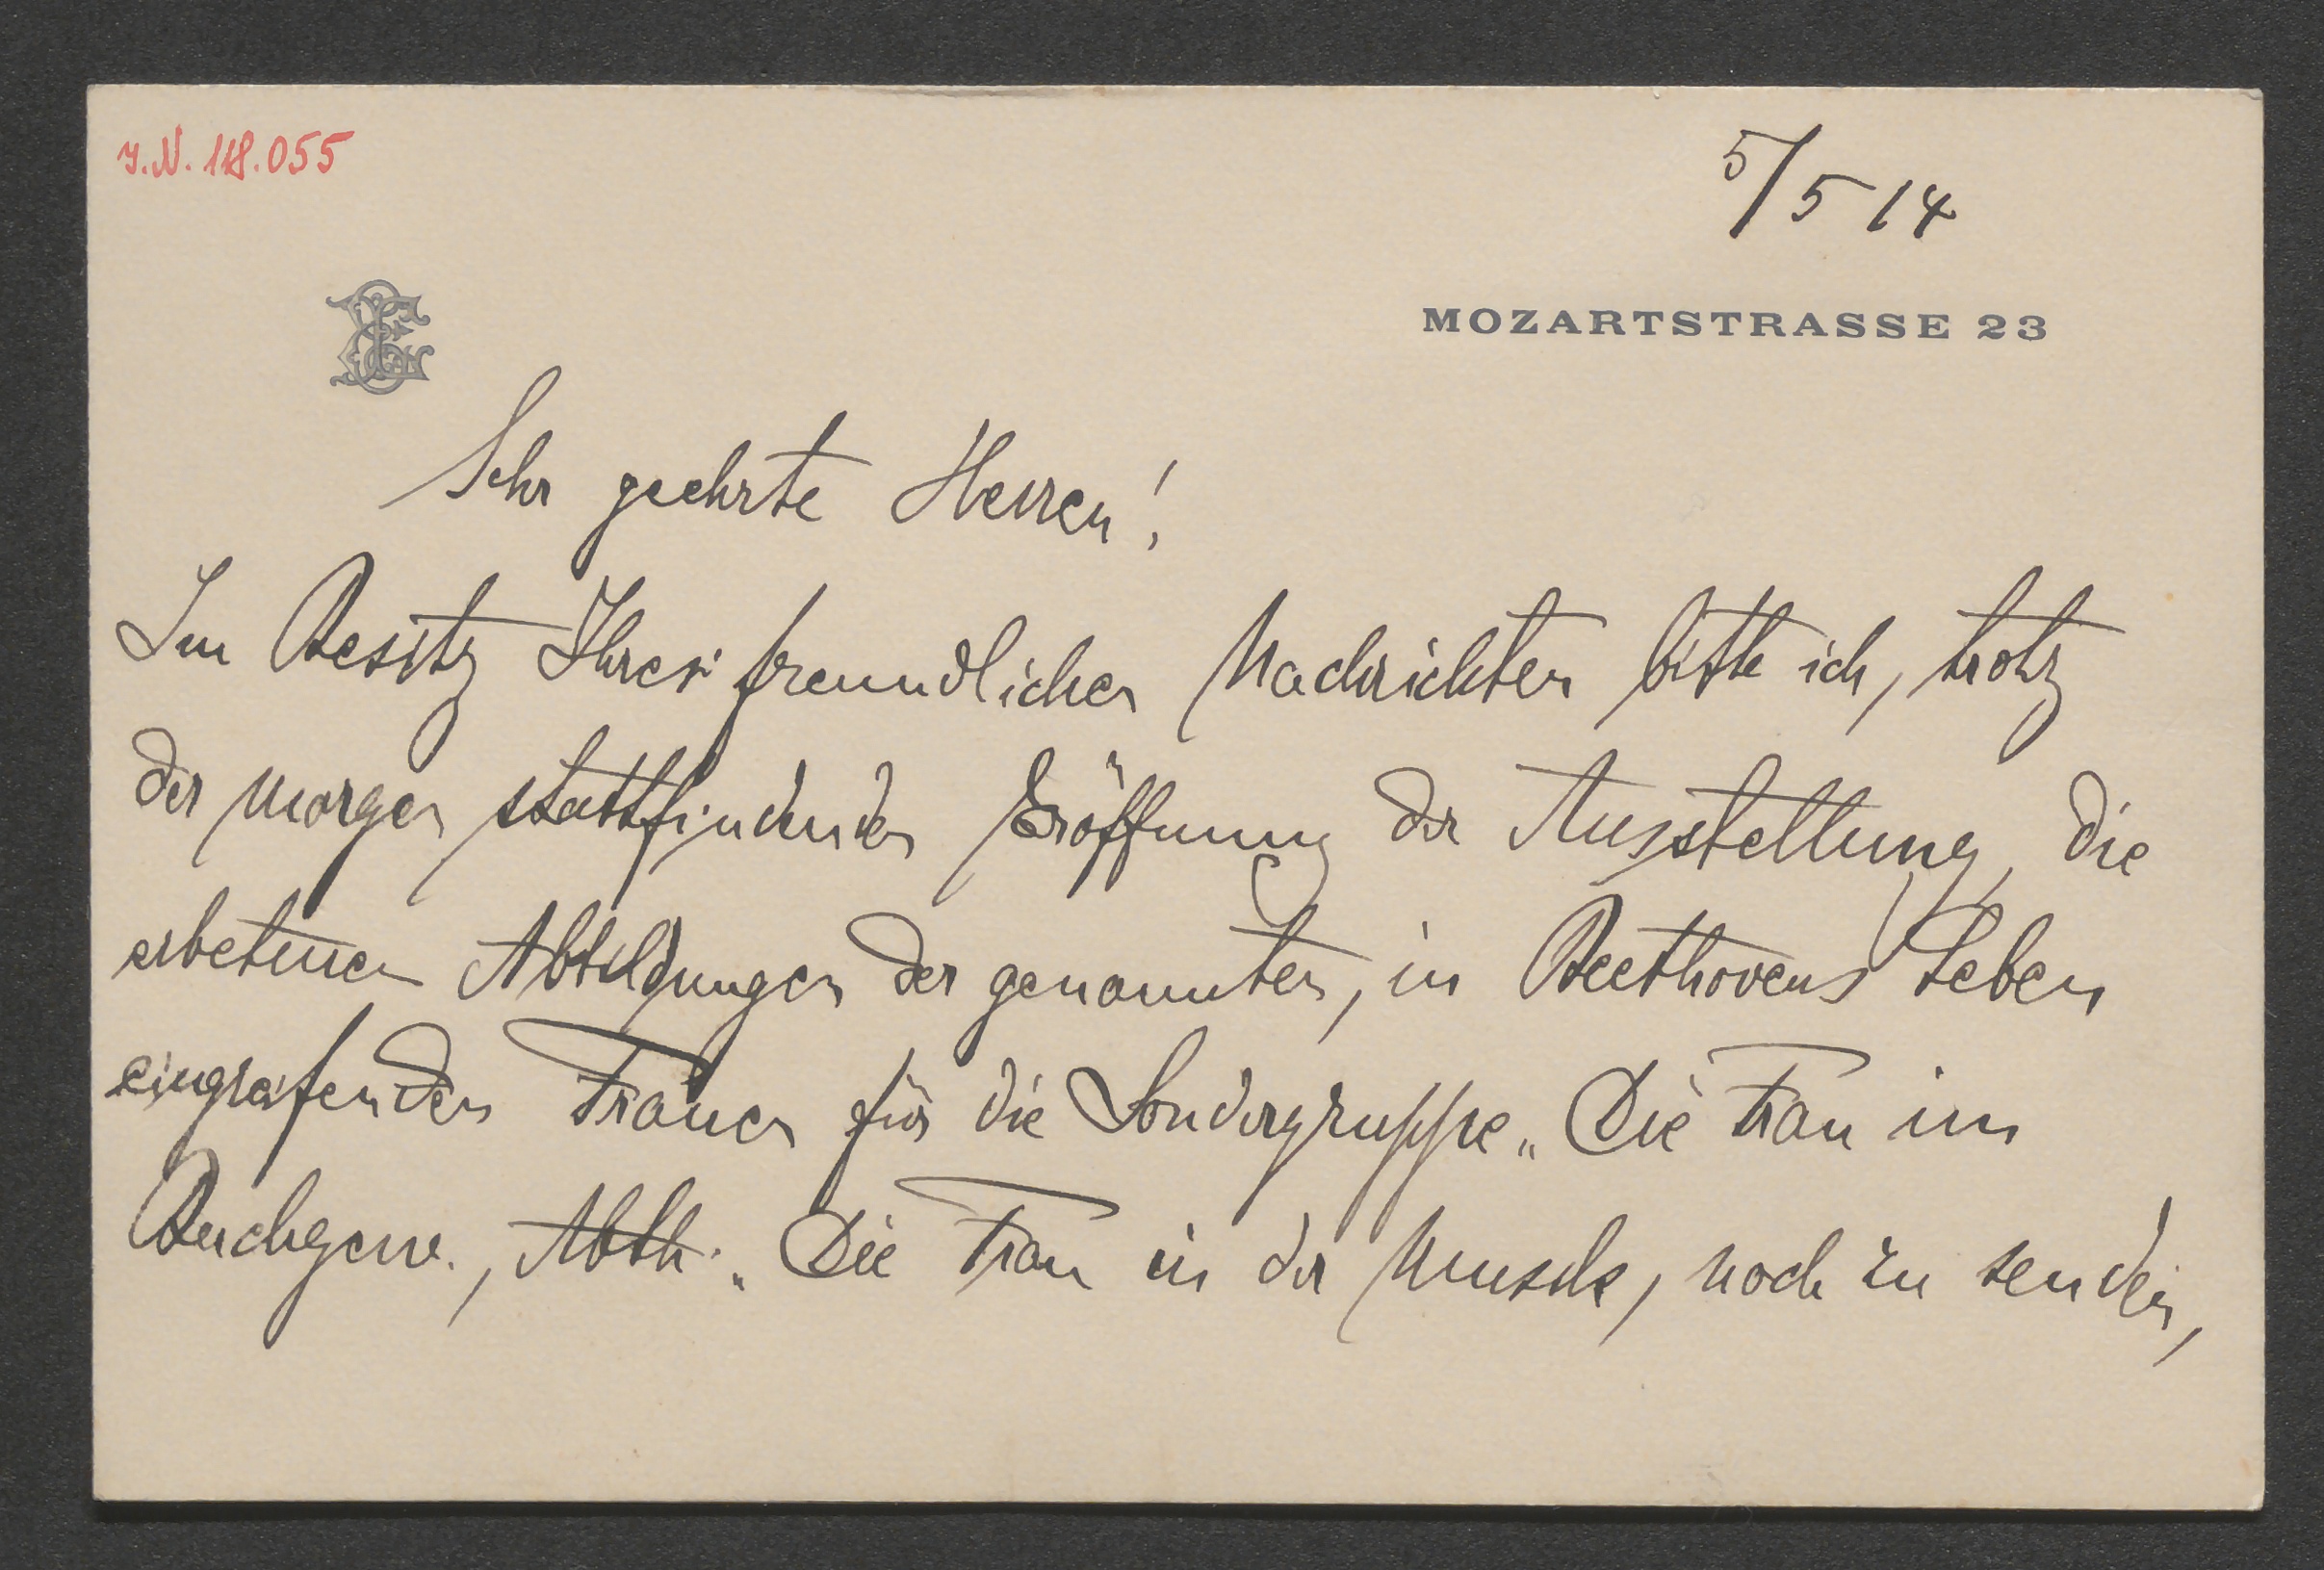 I.N. 118.055
5/5 14
MOZARTSTRASSE 23
Sehr geehrte Herren!
Im Besitz Ihrer freundlichen Nachrichten bitte ich, trotz
der morgen stattfindenden Eröffnung der Ausstellung, die
erbetenen Abbildungen der genannten, in Beethovens Leben
eingreifenden Frauen für die Sondergruppe „Die Frau im
Buchgew., Abth. „Die Frau in der Musik, noch zu senden,